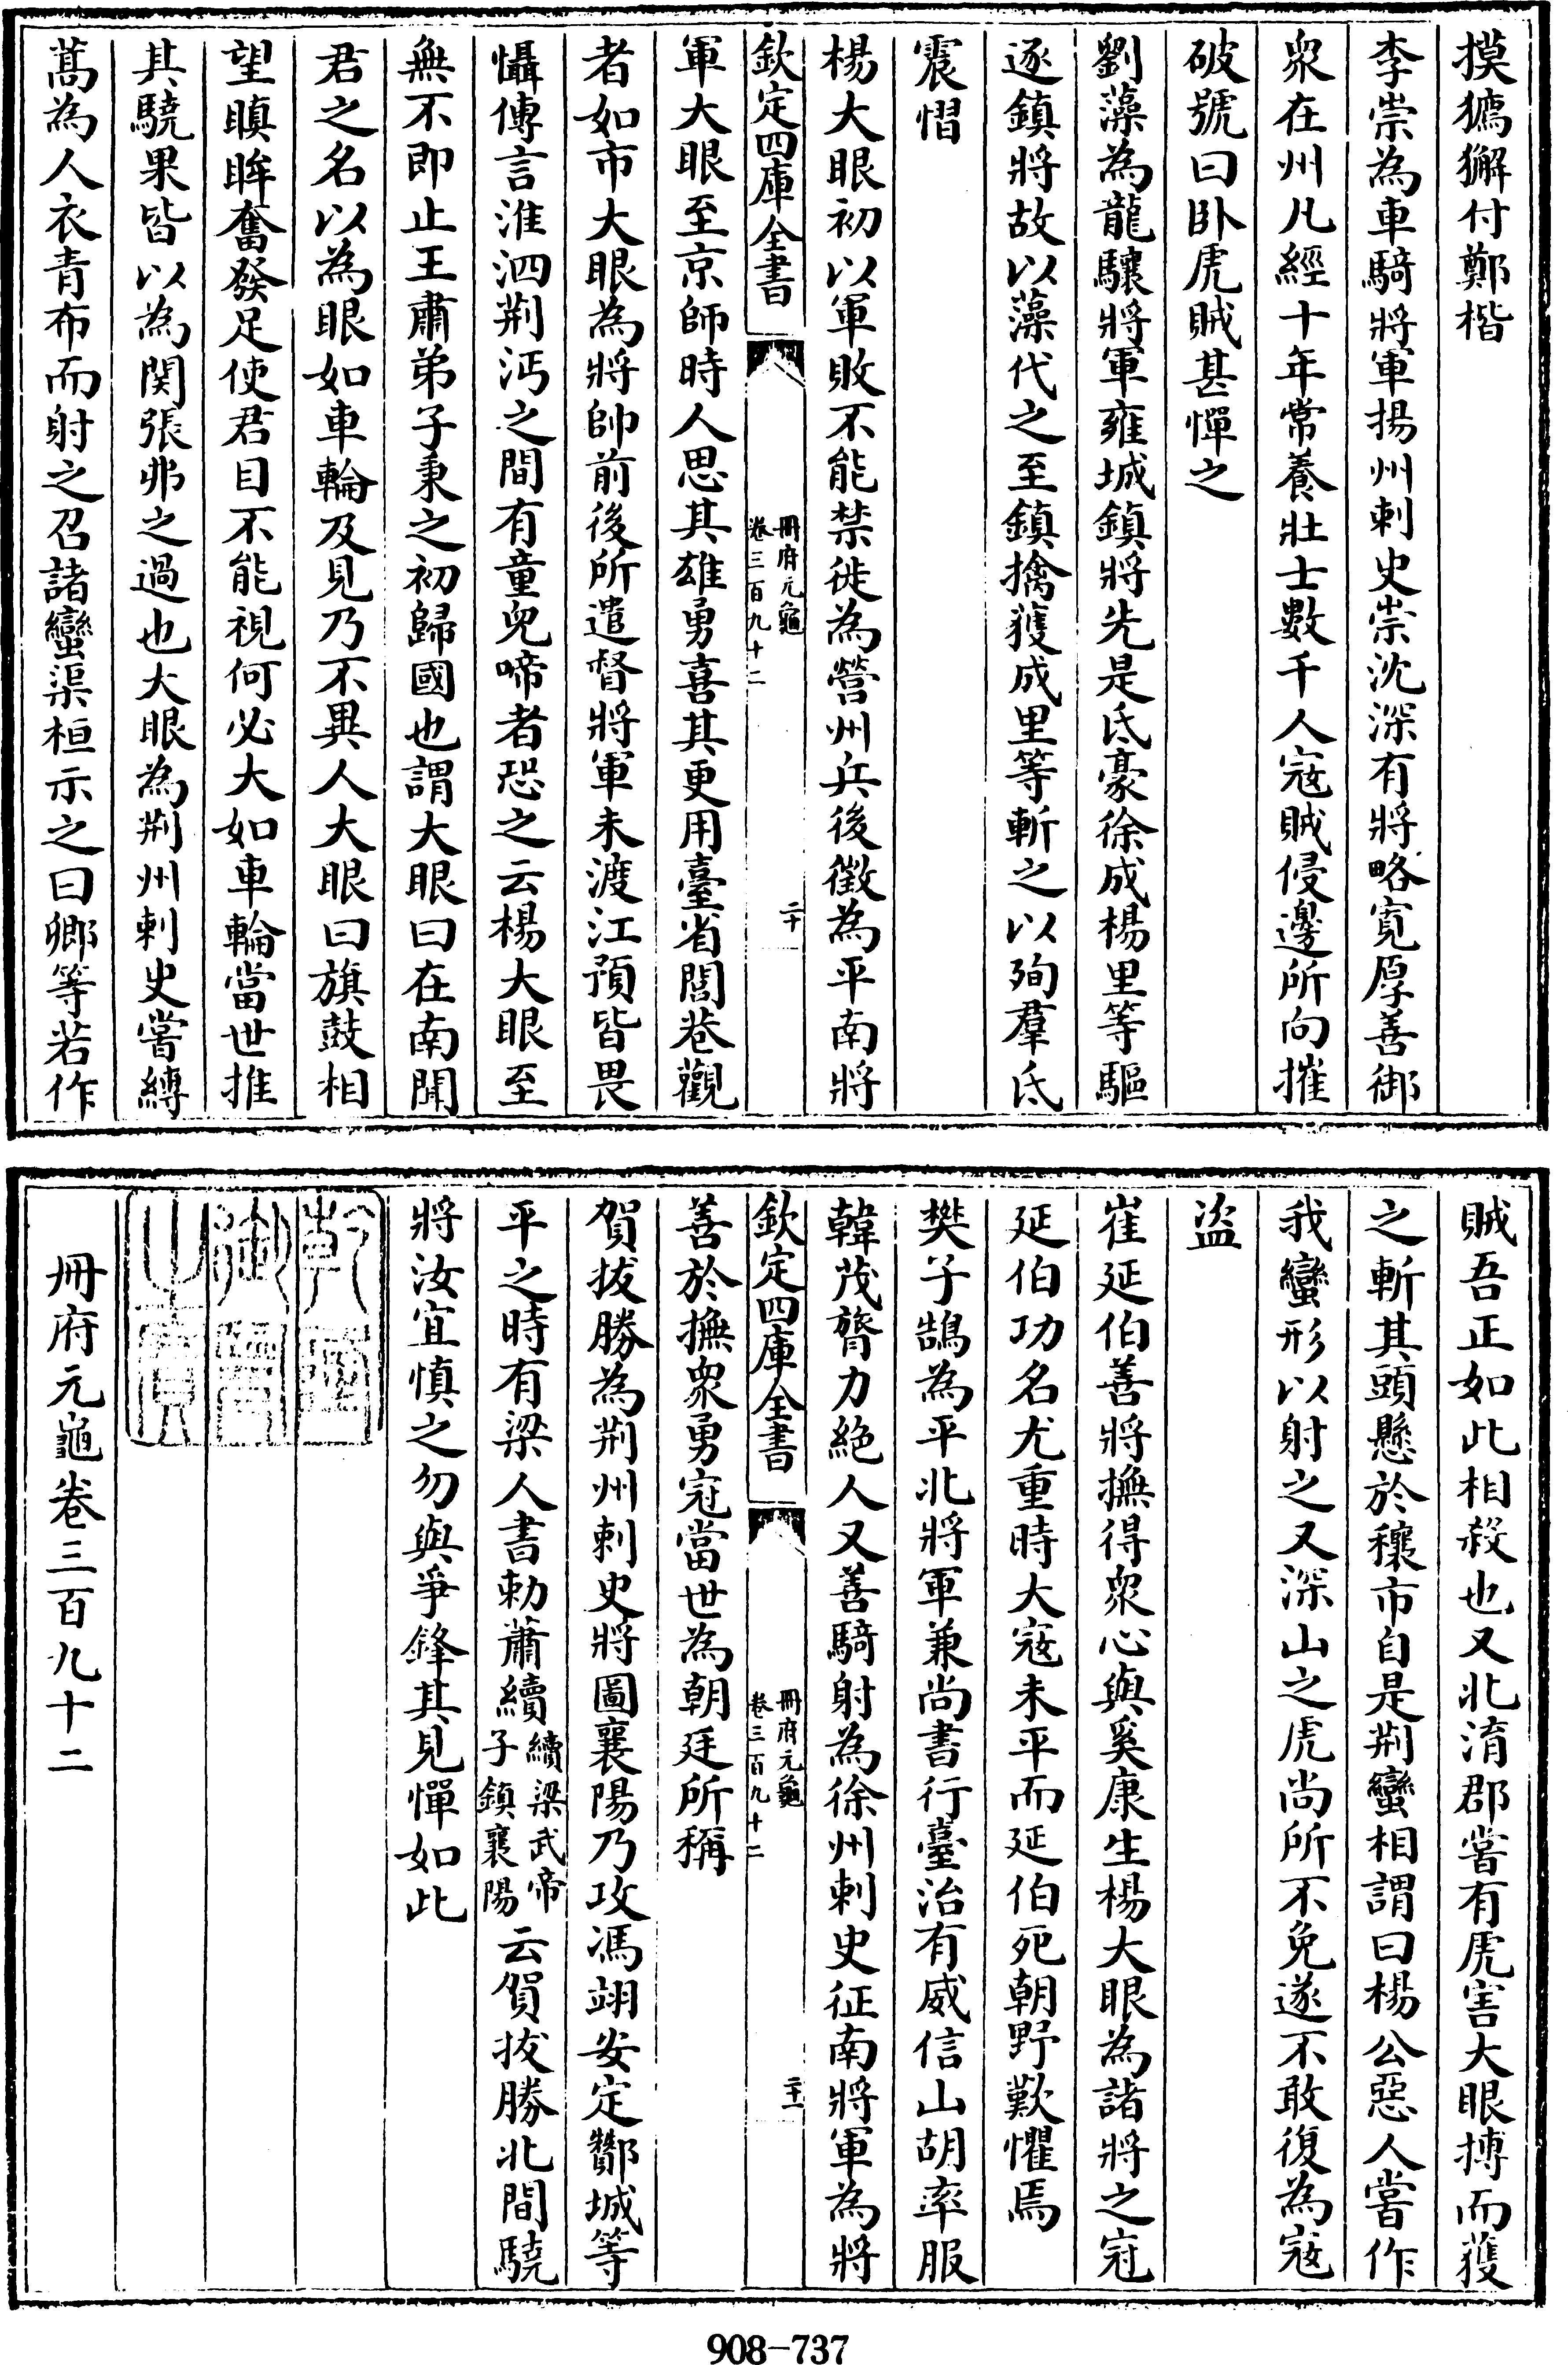 摸獦獬付鄭楷
李崇為車騎將軍揚州刺史崇沈深有將略寬厚善御
衆在州凡經十年常養壯士數千人宼賊侵邊所向摧
破號曰卧虎賊甚憚之
劉藻為龍驤將軍雍城鎮將先是氐豪徐成楊里等驅
逐鎮將故以藻代之至鎮擒獲成里等斬之以殉羣氐
震慴
楊大眼初以軍敗不能禁徙為營州兵後徵為平南將
欽定四庫全書
冊府元龜
卷三百九十二
二十
軍大眼至京師時人思其雄勇喜其更用臺省閭巷觀
者如市大眼為將帥前後所遣督將軍未渡江預皆畏
懾傳言淮泗荆沔之間有童兒啼者恐之云楊大眼至
無不即止王肅弟子秉之初歸國也謂大眼曰在南聞
君之名以為眼如車輪及見乃不異人大眼曰旗鼓相
望瞋眸奮發足使君目不能視何必大如車輪當世推
其驍果皆以為関張弗之過也大眼為荆州刺史嘗縛
蒿為人衣青布而射之召諸蠻渠桓示之曰卿等若作
賊吾正如此相殺也又北淯郡嘗有虎害大眼搏而獲
之斬其頭懸於穰市自是荆蠻相謂曰楊公惡人嘗作
我蠻形以射之又深山之虎尚所不免遂不敢復為宼
盜
崔延伯善將撫得衆心與奚康生楊大眼為諸將之冠
延伯功名尤重時大宼未平而延伯死朝野歎懼焉
樊子鵠為平北將軍兼尚書行臺治有威信山胡率服
韓茂膂力絶人又善騎射為徐州刺史征南將軍為將
欽定四庫全書
冊府元龜
卷三百九十二
二十一
善於撫衆勇冠當世為朝廷所稱
賀拔勝為荆州刺史將圖襄陽乃攻馮翊安定酇城等
平之時有梁人書勅蕭續續梁武帝子鎮襄陽云賀拔勝北間驍
將汝宜慎之勿與爭鋒其見憚如此
乾隆御覽之寶
冊府元龜卷三百九十二
908-737